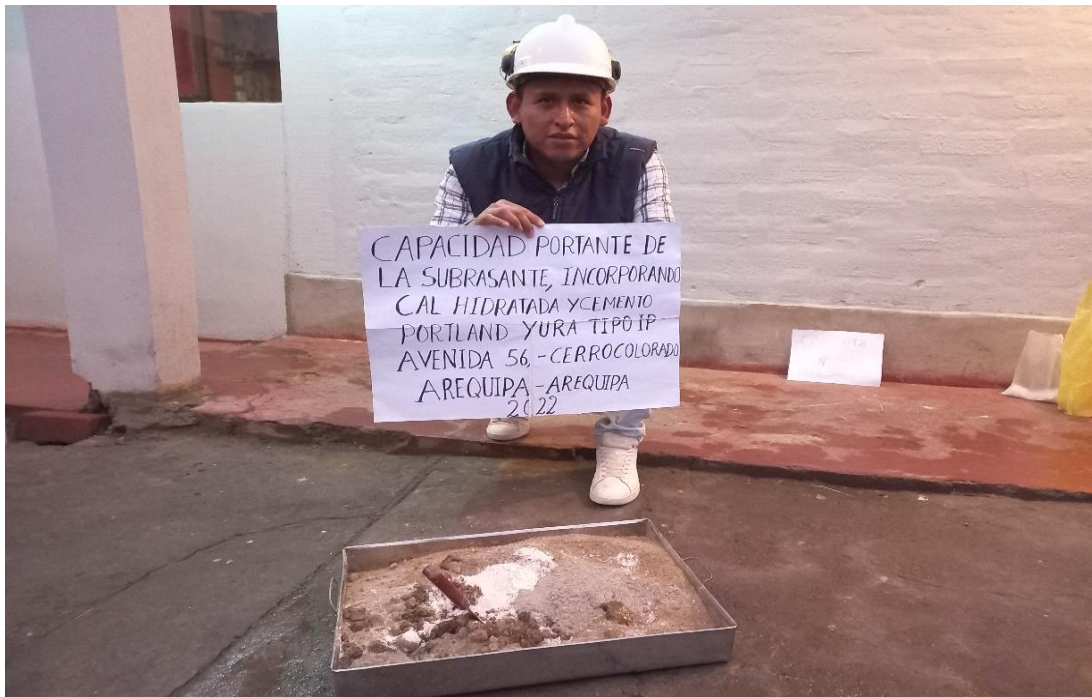 CAPACIDAD PORTANTE DE
LA SUBRASANTE, INCORPORANDO
CAL HIDRATADA Y CEMENTO
PORTLAND YURA TIPO IP
AVENIDA 56,-CERRO COLORADO
AREQUIPA-AREQUIPA
2022